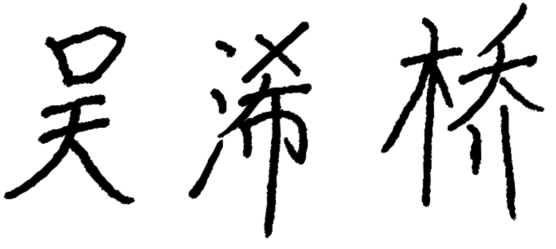 吴浠桥